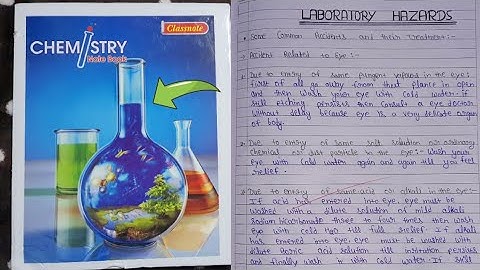 CHEMISTRY
Note Book
Classnote
LABORATORY HAZARDS
Some Common Accidents and their Treatment:-
Accident Related to Eye:-
1. Due to entry of some pungent vapours in the eye:
first of all go away from that place in open
and then wash your eye with cold water. if
still etching persists then consult a eye doctor
without delay because eye is a very delicate organ
of body.
2. Due to entry of some salt solution or ordinary
chemical or dust particle in the eye:- Wash your
eye with cold water again and again till you feel
relief.
3. Due to entry of some acid or alkali in the eye:-
If acid has entered into eye. eye must be
washed with a dilute solution of mild alkali
Sodium bicarbonate three to four times, then wash
eye with cold H2O till full relief. If alkali
has entered into eye. eye must be washed with
dilute boric acid solution till irritation persists
and finally wash it with cold water. If still